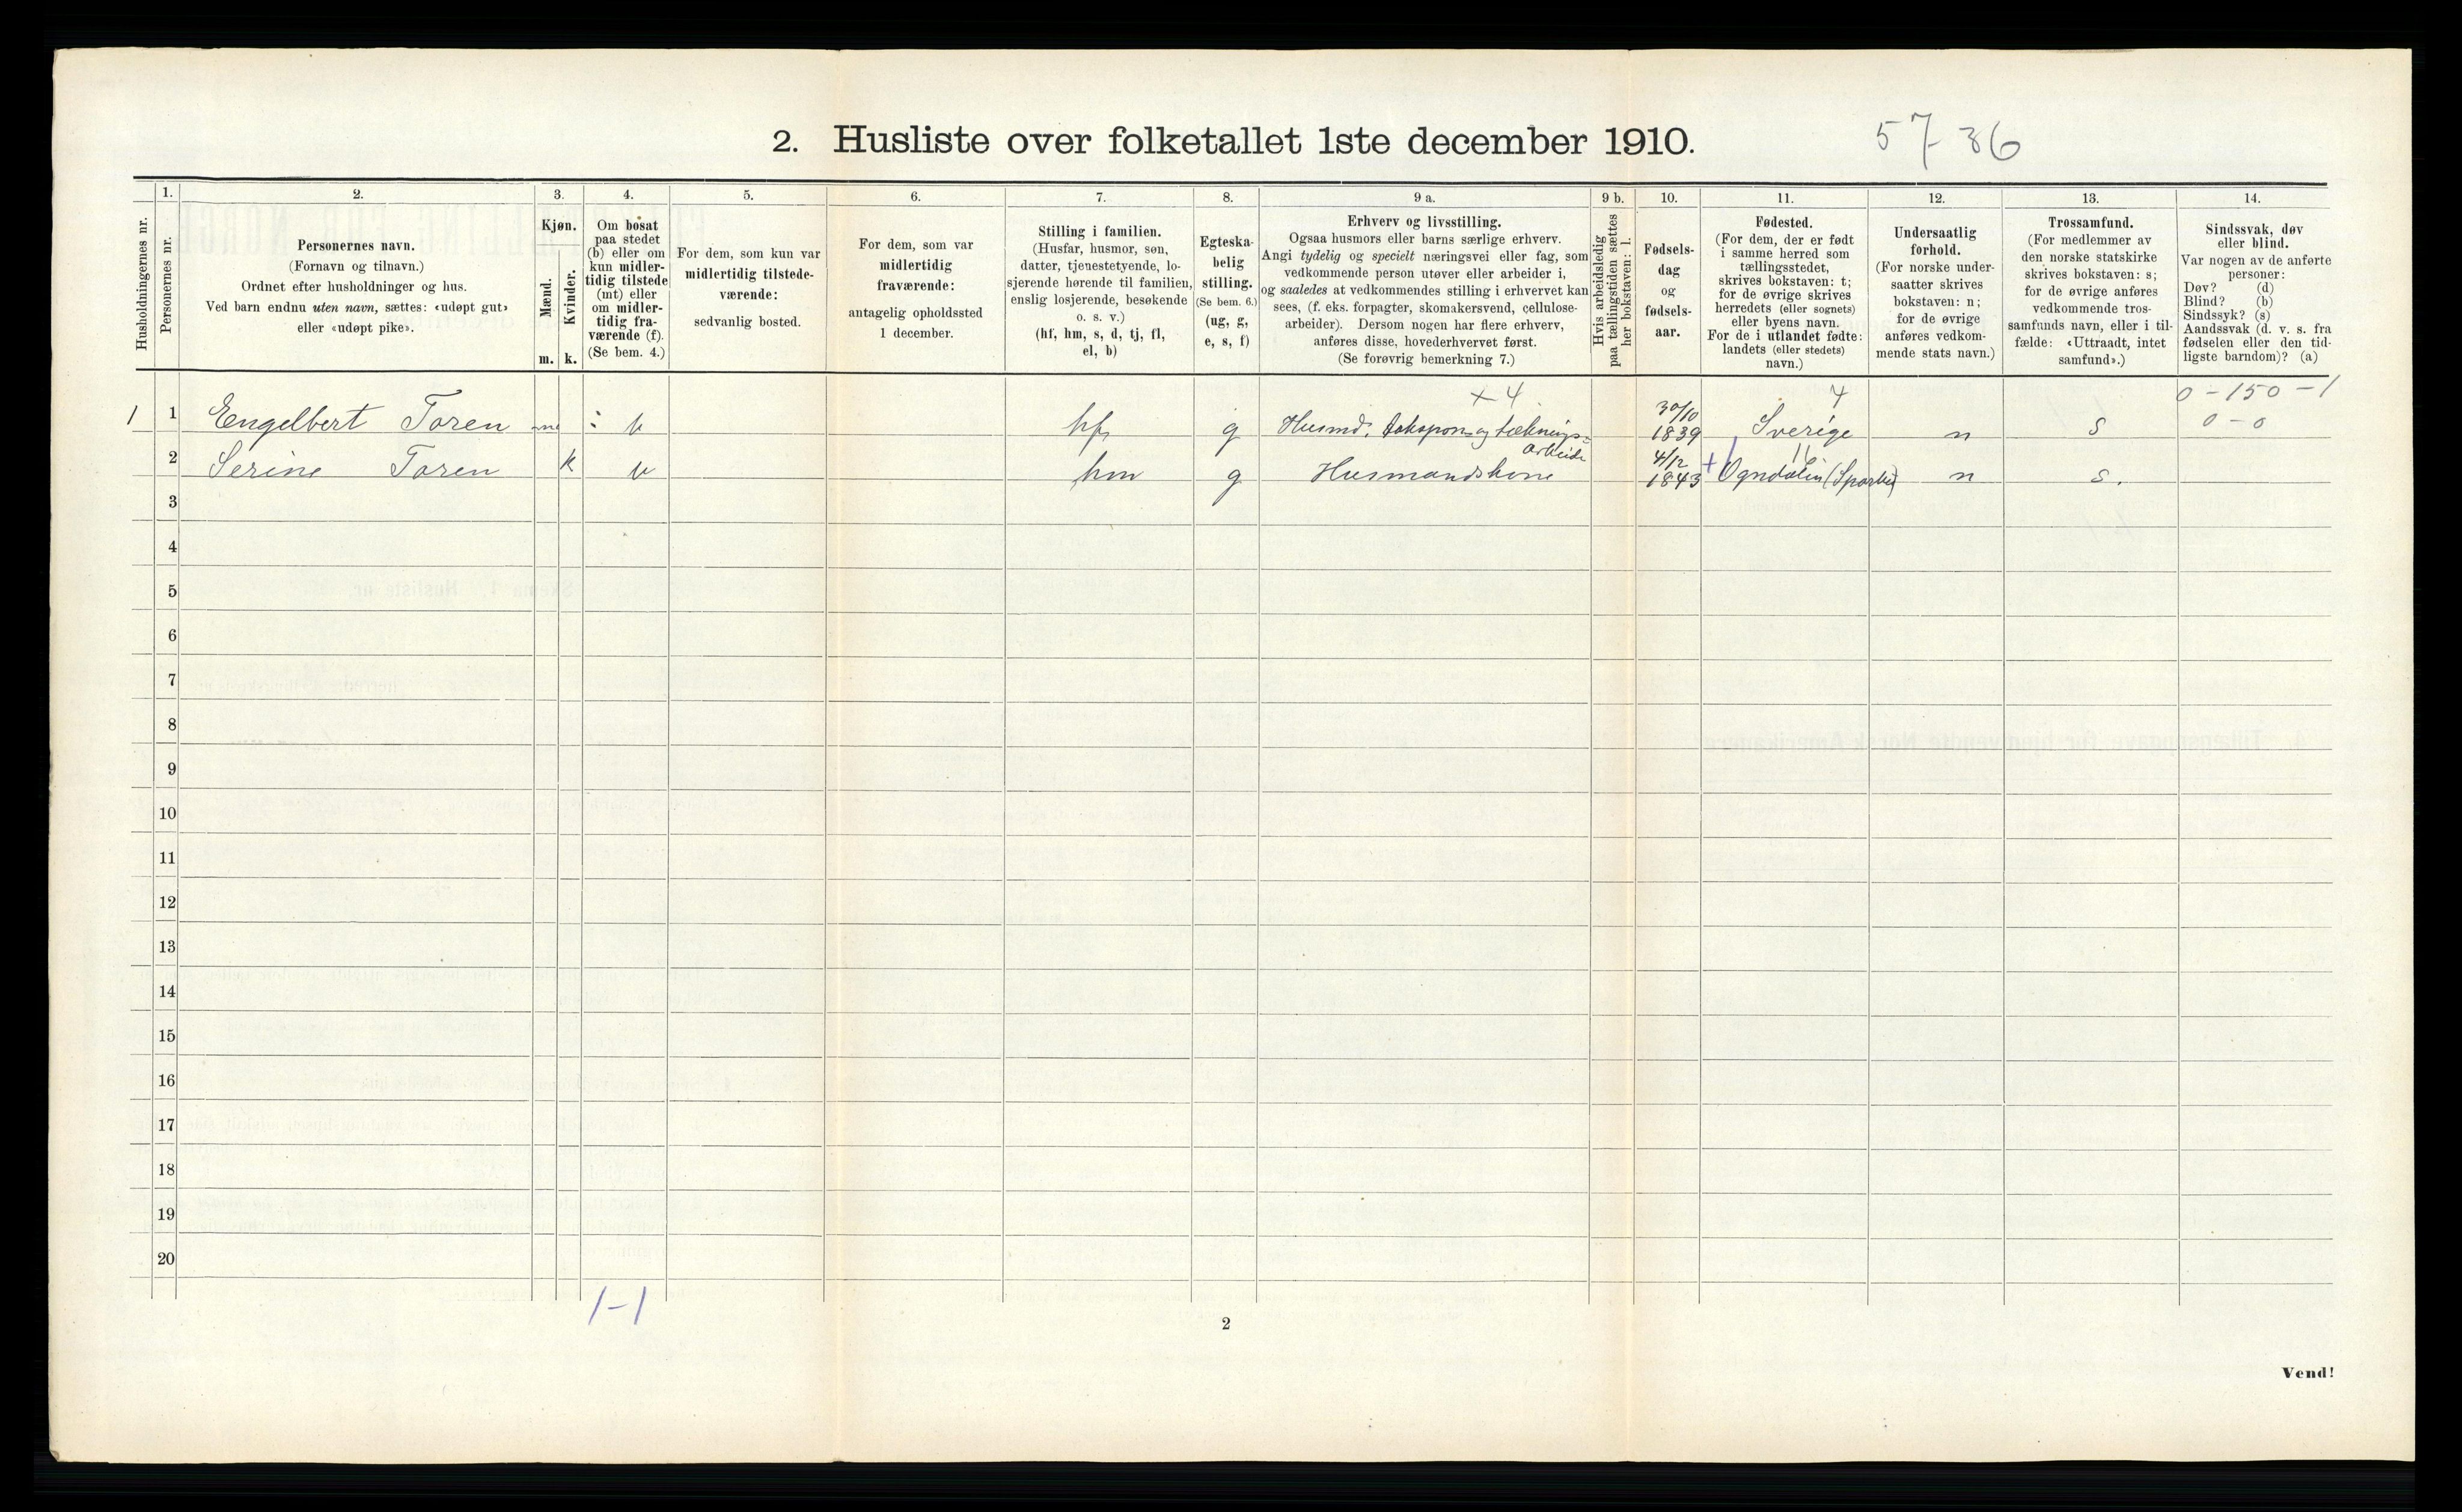 2. Husliste over folketallet 1ste december 1910.
57-86
1. 2. 3. 4. 5. 6. 7. 8. 9 a. 9 b. 10. 11. 12. 13. 14.
Husholdningernes nr.
Personernes nr.
Personernes navn.
(Fornavn og tilnavn.)
Ordnet efter husholdninger og hus.
Ved barn endnu uten navn, sættes: «udøpt gut»
eller «udøpt pike».
Kjøn.
Mænd.
Kvinder.
m. k.
Om bosat
paa stedet
(b) eller om
kun midler-
tidig tilstede
(mt) eller
om midler-
tidig fra-
værende (f).
(Se bem. 4.)
For dem, som kun var
midlertidig tilstede-
værende:
sedvanlig bosted.
For dem, som var
midlertidig
fraværende:
antagelig opholdssted
1 december.
Stilling i familien.
(Husfar, husmor, søn,
datter, tjenestetyende, lo-
sjerende hørende til familien,
enslig losjerende, besøkende
o. s. v.)
(hf, hm, s, d, tj, fl,
el, b)
Egteska-
belig
stilling.
(Se bem. 6.)
(ug, g,
e, s, f)
Erhverv og livsstilling.
Ogsaa husmors eller barns særlige erhverv.
Angi tydelig og specielt næringsvei eller fag, som
vedkommende person utøver eller arbeider i,
og saaledes at vedkommendes stilling i erhvervet kan
sees, (f. eks. forpagter, skomakersvend, cellulose-
arbeider). Dersom nogen har flere erhverv,
anføres disse, hovederhvervet først.
(Se forøvrig bemerkning 7.)
Hvis arbeidsledig
paa tællingstiden sættes
her bokstaven: l.
Fødsels-
dag
og
fødsels-
aar.
Fødested.
(For dem, der er født
i samme herred som
tællingsstedet,
skrives bokstaven: t;
for de øvrige skrives
herredets (eller sognets)
eller byens navn.
For de i utlandet fødte:
landets (eller stedets)
navn.)
Undersaatlig
forhold.
(For norske under-
saatter skrives
bokstaven: n;
for de øvrige
anføres vedkom-
mende stats navn.)
Trossamfund.
(For medlemmer av
den norske statskirke
skrives bokstaven: s;
for de øvrige anføres
vedkommende tros-
samfunds navn, eller i til-
fælde: «Uttraadt, intet
samfund».)
Sindssvak, døv
eller blind.
Var nogen av de anførte
personer:
Døv? (d)
Blind? (b)
Sindssyk? (s)
Aandssvak (d. v. s. fra
fødselen eller den tid-
ligste barndom)? (a)
× 4 4 0-150-1
1 1 Engelbert Toren m b hf g Husmd. takspon- og tæknings- 30/10 1839 Sverige n s 0-0
arbeide
16
2 Serine Toren k b hm g Husmandskone 4/12 1843 + Ogndalen (Sparbu) n s.
3
4
5
6
7
8
9
10
11
12
13
14
15
16
17
18
19
20
1-1
2
Vend!